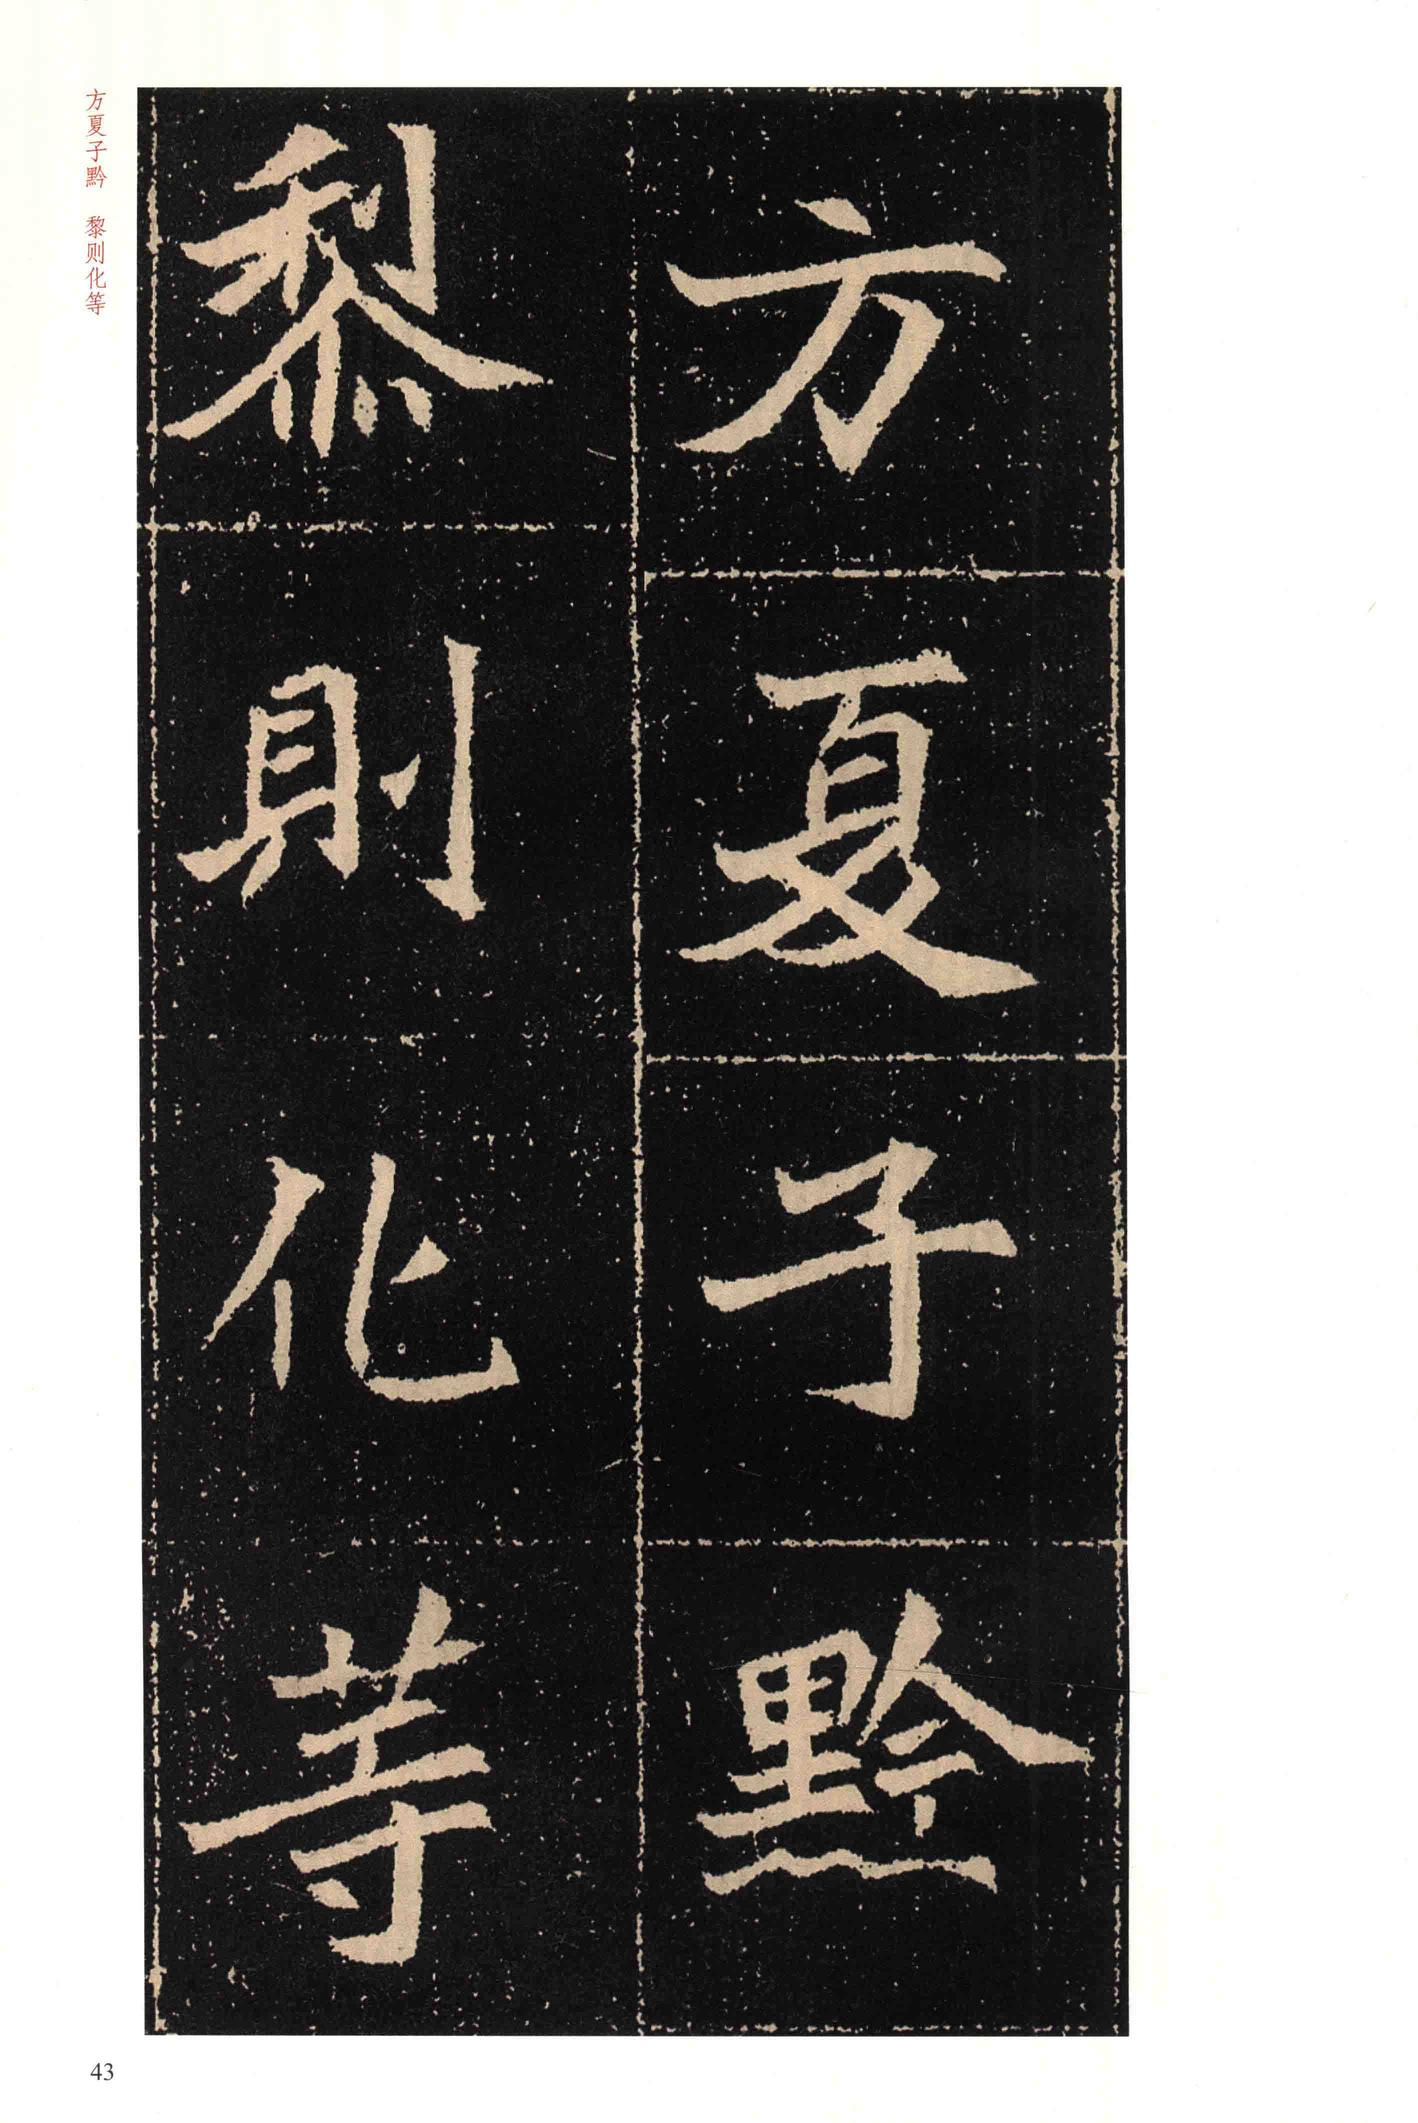 方夏子黔
黎則化等
方夏子黔　黎则化等
43